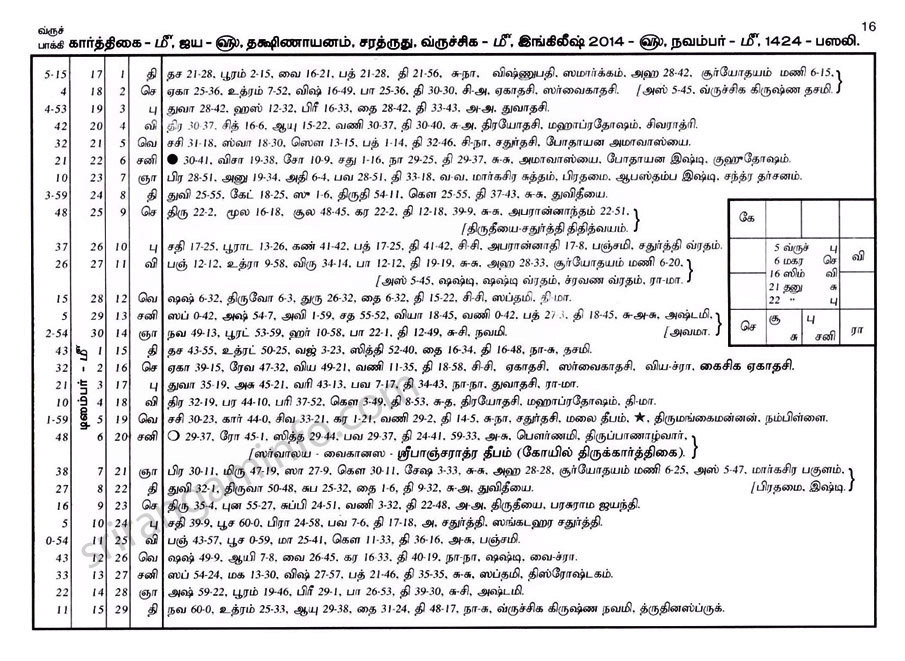 16
வ்ருச்
பாக்கி கார்த்திகை - மீ, ஜய - ௵, தக்ஷிணாயனம், சரத்ருது, வ்ருச்சிக - மீ, இங்கிலீஷ் 2014 - ௵, நவம்பர் - மீ, 1424 - பஸலி.
5-15 17 1 தி தச 21-28, பூரம் 2-15, வை 16-21, பத் 21-28, தி 21-56, சு-நா, விஷ்ணுபதி, ஸமார்க்கம், அஹ 28-42, சூர்யோதயம் மணி 6-15,
4 18 2 செ ஏகா 25-36, உத்ரம் 7-52, விஷ் 16-49, பா 25-36, தி 30-30, சி-அ, ஏகாதசி, ஸர்வைகாதசி. [அஸ் 5-45, வ்ருச்சிக கிருஷ்ண தசமி.
4-53 19 3 பு துவா 28-42, ஹஸ் 12-32, பிரீ 16-33, தை 28-42, தி 33-43, அ-அ, துவாதசி.
42 20 4 வி திர 30-37, சித் 16-6, ஆயு 15-22, வணி 30-37, தி 30-40, சு-அ, திரயோதசி, மஹாப்ரதோஷம், சிவராத்ரி.
32 21 5 வெ சசி 31-18, ஸ்வா 18-30, ஸௌ 13-15, பத் 1-14, தி 32-46, சி-நா, சதுர்தசி, போதாயன அமாவாஸ்யை.
21 22 6 சனி ● 30-41, விசா 19-38, சோ 10-9, சது 1-16, நா 29-25, தி 29-37, சு-சு, அமாவாஸ்யை, போதாயன இஷ்டி, குஹுதோஷம்.
10 23 7 ஞா பிர 28-51, அனு 19-34, அதி 6-4, பவ 28-51, தி 33-18, வ-வ, மார்கசிர சுத்தம், பிரதமை, ஆபஸ்தம்ப இஷ்டி, சந்த்ர தர்சனம்.
3-59 24 8 தி துவி 25-55, கேட் 18-25, ஸு 1-6, திருதி 54-11, கௌ 25-55, தி 37-43, சு-சு, துவிதீயை.
48 25 9 செ திரு 22-2, மூல 16-18, சூல 48-45, கர 22-2, தி 12-18, 39-9, சு-சு, அபரான்னாந்தம் 22-51,
[திருதீயை-சதுர்த்தி திதித்வயம்.
37 26 10 பு சதி 17-25, பூராட 13-26, கண் 41-42, பத் 17-25, தி 41-42, சி-சி, அபரான்னாதி 17-8, பஞ்சமி, சதுர்த்தி வ்ரதம்.
26 27 11 வி பஞ் 12-12, உத்ரா 9-58, விரு 34-14, பா 12-12, தி 19-19, சு-சு, அஹ 28-33, சூர்யோதயம் மணி 6-20,
[அஸ் 5-45, ஷஷ்டி, ஷஷ்டி வ்ரதம், ச்ரவண வ்ரதம், ரா-மா.
15 28 12 வெ ஷஷ் 6-32, திருவோ 6-3, துரு 26-32, தை 6-32, தி 15-22, சி-சி, ஸப்தமி, தி-மா.
5 29 13 சனி ஸப் 0-42, அஷ் 54-7, அவி 1-59, சத 55-52, வியா 18-45, வணி 0-42, பத் 27-3, தி 18-45, சு-அ-சு, அஷ்டமி,
2-54 30 14 ஞா நவ 49-13, பூரட் 53-59, ஹர் 10-58, பா 22-1, தி 12-49, சு-சி, நவமி. [அவமா.
கே
5 வ்ருச் பு
6 மகர செ
16 ஸிம் வி
21 தனு சு
22 " பு
வி
செ
சூ சு
பு சனி
ரா
டிஸம்பர் - மீ
43 1 15 தி தச 43-55, உத்ரட் 50-25, வஜ் 3-23, ஸித்தி 52-40, தை 16-34, தி 16-48, நா-சு, தசமி.
32 2 16 செ ஏகா 39-15, ரேவ 47-32, விய 49-21, வணி 11-35, தி 18-58, சி-சி, ஏகாதசி, ஸர்வைகாதசி, விய-ச்ரா, கைசிக ஏகாதசி.
21 3 17 பு துவா 35-19, அசு 45-21, வரி 43-13, பவ 7-17, தி 34-43, நா-நா, துவாதசி, ரா-மா.
10 4 18 வி திர 32-19, பர 44-10, பரி 37-52, கௌ 3-49, தி 8-53, சு-த, திரயோதசி, மஹாப்ரதோஷம், தி-மா.
1-59 5 19 வெ சசி 30-23, கார் 44-0, சிவ 33-21, கர 1-21, வணி 29-2, தி 14-5, சு-நா, சதுர்தசி, மலை தீபம், ★, திருமங்கைமன்னன், நம்பிள்ளை.
48 6 20 சனி ○ 29-37, ரோ 45-1, ஸித்த 29-44, பவ 29-37, தி 24-41, 59-33, அ-சு, பௌர்ணமி, திருப்பாணாழ்வார்,
[ஸர்வாலய - வைகானஸ - ஸ்ரீபாஞ்சராத்ர தீபம் (கோயில் திருக்கார்த்திகை).
38 7 21 ஞா பிர 30-11, மிரு 47-19, ஸா 27-9, கௌ 30-11, சேஷ 3-33, சு-சு, அஹ 28-28, சூர்யோதயம் மணி 6-25, அஸ் 5-47, மார்கசிர பகுளம்,
27 8 22 தி துவி 32-1, திருவா 50-48, சுப 25-32, தை 1-6, தி 9-32, சு-அ, துவிதீயை. [பிரதமை, இஷ்டி.
16 9 23 செ திரு 35-4, புன 55-27, சுப்பி 24-51, வணி 3-32, தி 22-48, அ-அ, திருதீயை, பரசுராம ஜயந்தி.
5 10 24 பு சதி 39-9, பூச 60-0, பிரா 24-58, பவ 7-6, தி 17-18, அ, சதுர்த்தி, ஸங்கடஹர சதுர்த்தி.
0-54 11 25 வி பஞ் 43-57, பூச 0-59, மா 25-41, கௌ 11-33, தி 36-16, அ-சு, பஞ்சமி.
43 12 26 வெ ஷஷ் 49-9, ஆயி 7-8, வை 26-45, கர 16-33, தி 40-19, நா-நா, ஷஷ்டி, வை-ச்ரா.
33 13 27 சனி ஸப் 54-24, மக 13-30, விஷ் 27-57, பத் 21-46, தி 35-35, சு-சு, ஸப்தமி, திஸ்ரோஷ்டகம்.
22 14 28 ஞா அஷ் 59-22, பூரம் 19-46, பிரீ 29-1, பா 26-53, தி 39-30, சு-சி, அஷ்டமி.
11 15 29 தி நவ 60-0, உத்ரம் 25-33, ஆயு 29-38, தை 31-24, தி 48-17, நா-சு, வ்ருச்சிக கிருஷ்ண நவமி, த்ருதினஸ்ப்ருக்.
srirangaminfo.com